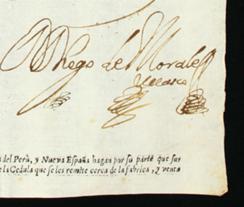 D Diego de Morales
Velasco
s del Perù, y Nueva España hagan por su parte que sur
e la Cedula que se les remite cerca de la fabrica, y venta